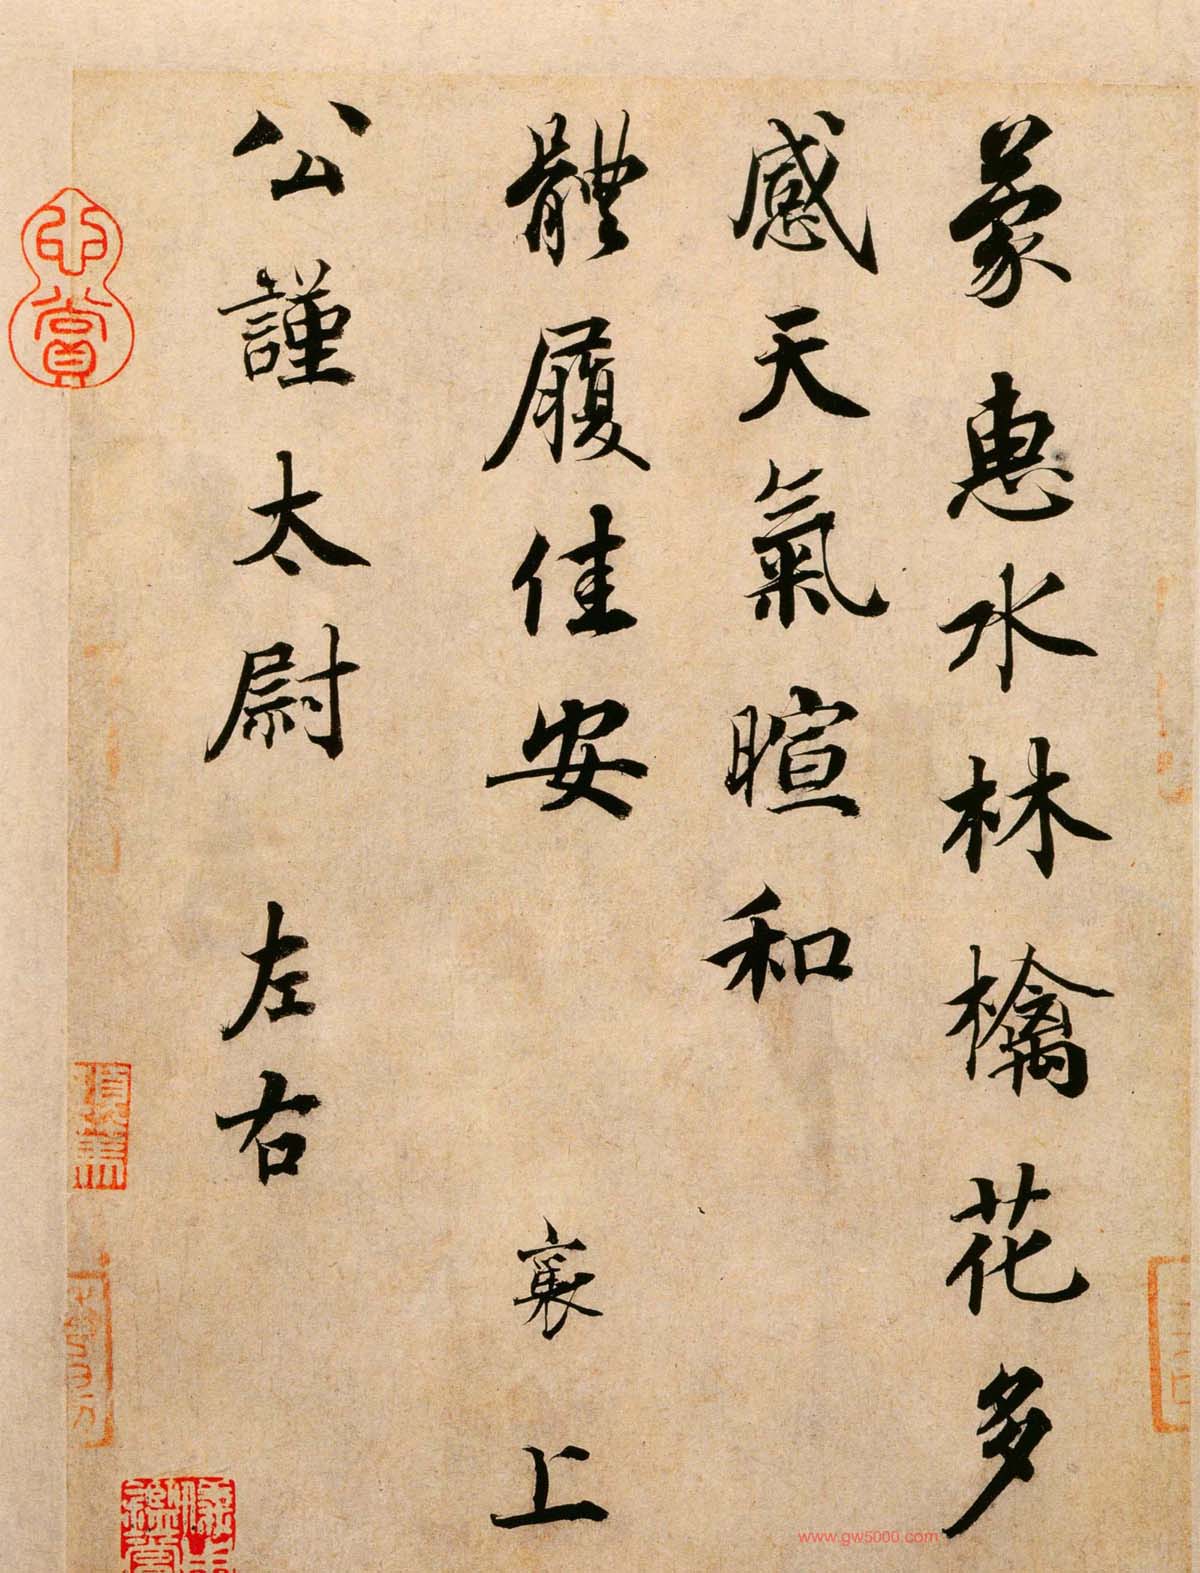 蒙惠水林檎花多
感天氣暄和
體履佳安 襄上
公謹太尉 左右
心賞
www.gw5000.com